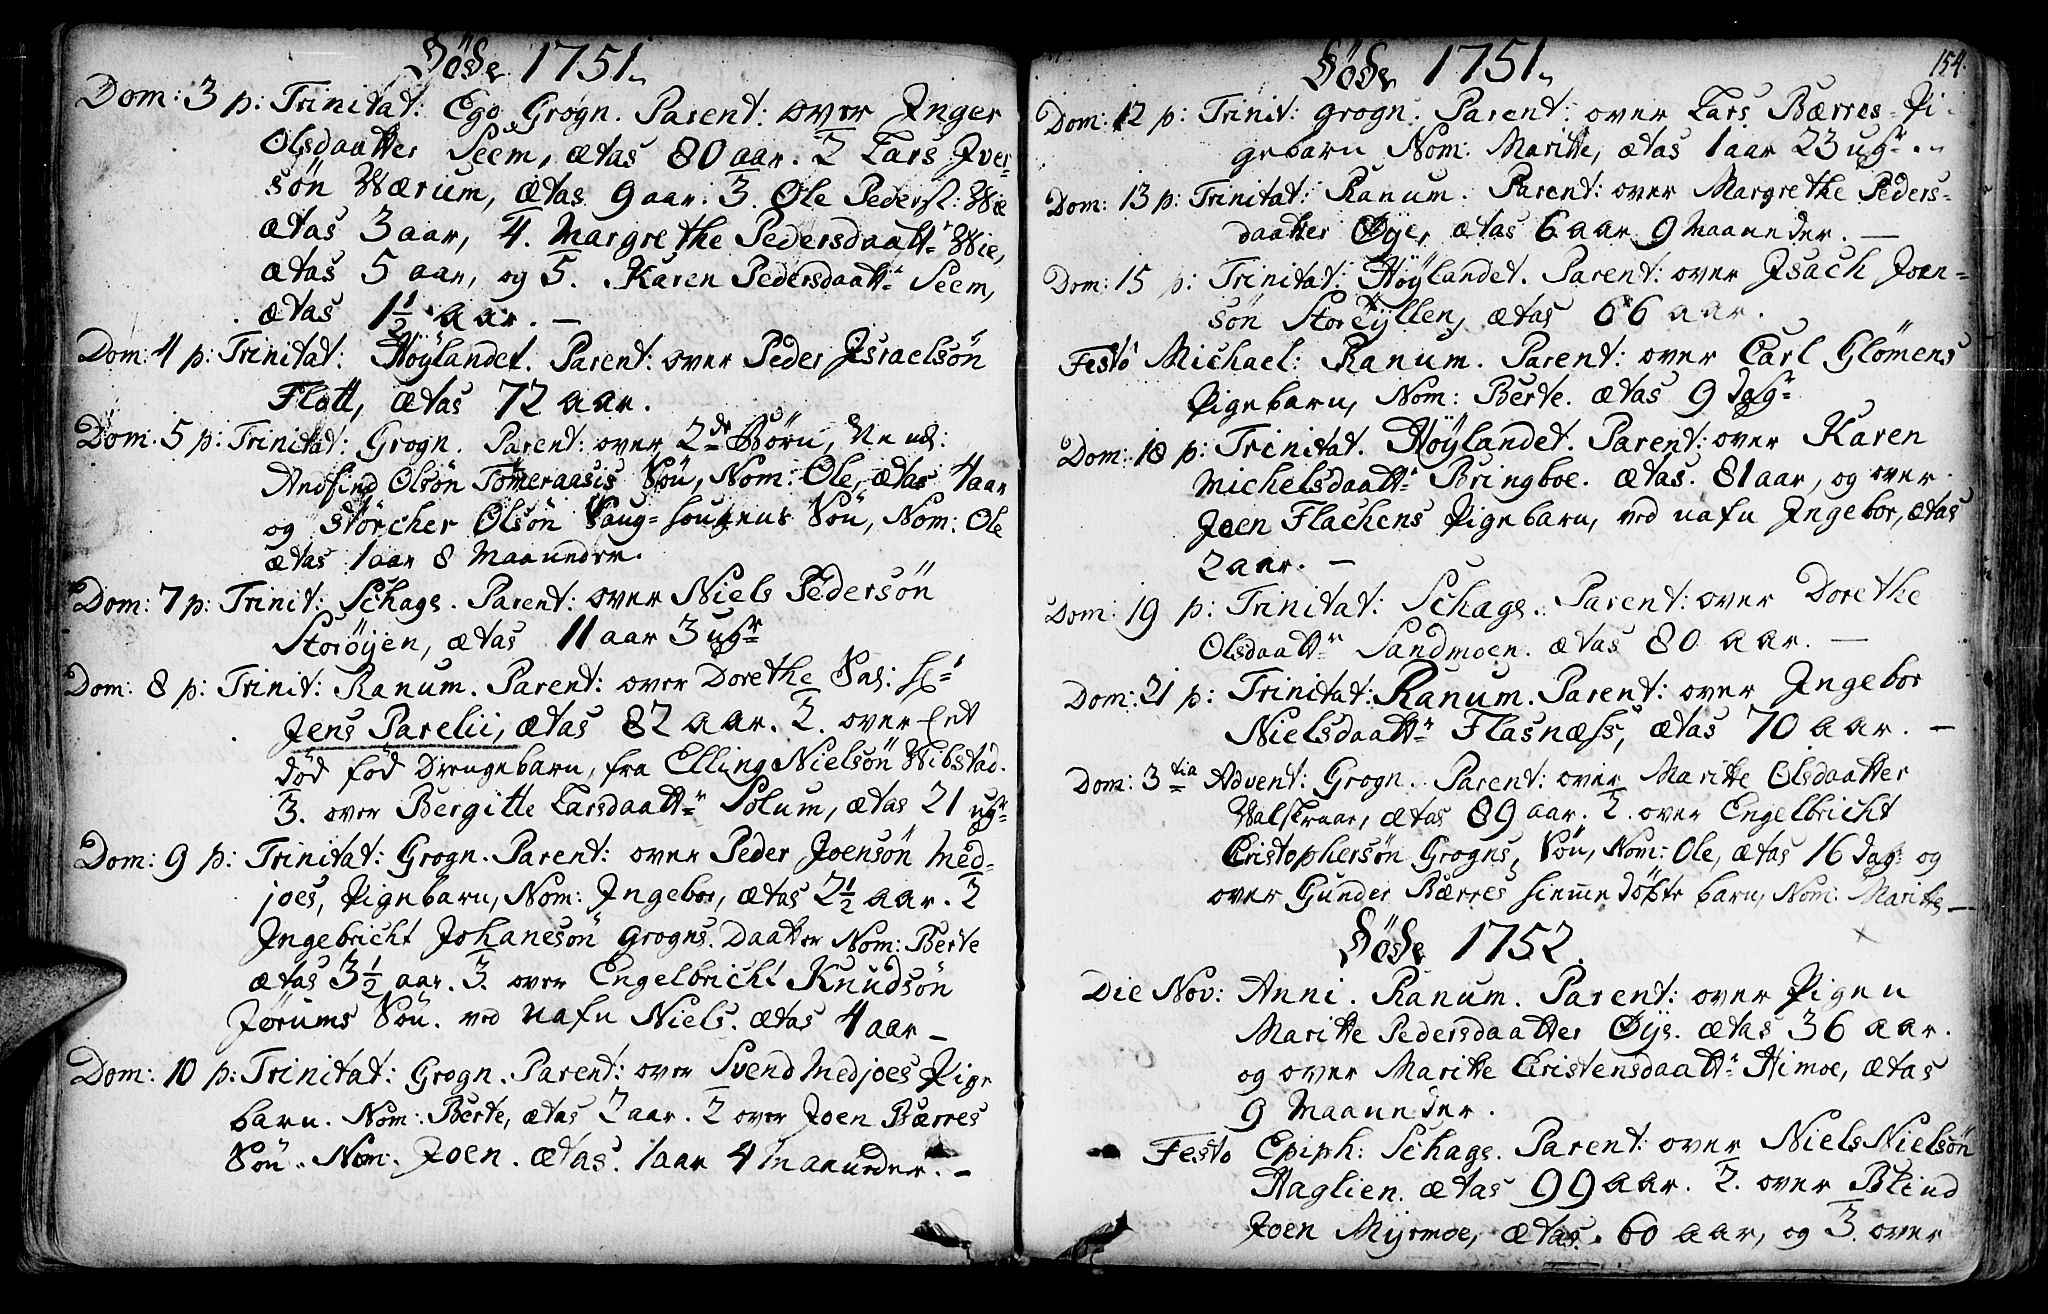 Döde 1751.
Dom: 3 p: Trinitat: Ego Grogn. Parent: over Inger
Olsdaatter Seem, ætas 80 aar. 2 Lars Iver-
søn Værum, ætas 9 aar. 3. Ole Peders: Wie
ætas 3 aar, 4. Margrethe Pedersdaattr Wie,
ætas 5 aar, og 5. Karen Pedersdaattr Seem,
ætas 1½ aar. —
Dom: 4 p: Trinitat: Höylandet. Parent: over Peder Israelsön
Flott, ætas 72 aar.
Dom: 5 p: Trinitat: Grogn. Parent: over 2de Börn, Nendl:
Andfind Olsön Tömeraasis Sön, Nom: Ole, ætas 4 aar
og Störcher Olsön Saug Sön, Nom: Ole
ætas 1 aar 8 Maaneder.
Dom: 7 p: Trinit: Schage. Parent: over Niels Pedersön
Storöyen, ætas 11 aar 3 ugr
Dom: 8 p: Trinit: Ranum. Parent: over Dorethe Sal: Hr
Jens Parelii, ætas 82 aar. 2. over Eet
död föd Drengebarn, fra Elling Nielsön Vibstad.
3. over Bergitte Larsdaattr Solum, ætas 21 ugr
Dom: 9 p: Trinitat: Grogn. Parent: over Peder Joensön Med-
joes, Pigebarn, Nom: Ingebor, ætas 2½ aar. 2
Ingebricht Johanesön Grogns. Daatter Nom: Berte
ætas 3½ aar. 3. over Engelbricht Knudsön
Jörums Sön. ved nafn Niels. ætas 4 aar —
Dom: 10 p: Trinitat: Grogn. Parent: over Svend Medjoes Pige
barn. Nom: Berte, ætas 2 aar. 2 over Joen Bærres
Sön. Nom: Joen. ætas. 1 aar 4 Maaneder. —
154.
Döde 1751.
Dom: 12 p: Trinit: Grogn. Parent: over Lars Bærres Pi-
gebarn Nom: Maritte, ætas 1 aar 23 ugr
Dom: 13 p: Trinitat: Ranum. Parent: over Margrethe Peders-
daatter Öyer, ætas 6 aar 9 Maaneder. —
Dom: 15 p: Trinitat: Höylandet. Parent: over Isach Joen-
sön Storöyllen, ætas 66 aar.
Festo Michael: Ranum. Parent: over Carl Glömens
Pigebarn, Nom: Berte. ætas 9 dagr
Dom: 18 p: Trinitat. Höylandet. Parent: over Karen
Michelsdaattr Bringboe. ætas. 81 aar, og over
Joen Flachens Pigebarn, ved nafn Ingebor, ætas
2 aar. —
Dom: 19 p: Trinitat: Schage. Parent: over Dorethe
Olsdaattr Sandmoen. ætas 80 aar. —
Dom: 21 p: Trinitat: Ranum. Parent: over Ingebor
Nielsdaattr Flasnæss, ætas 70 aar. —
Dom: 3tia Advent: Grogn. Parent: over Maritte Olsdaatter
Walskraae, ætas 89 aar. 2. over Engelbricht
Cristophersön Grogns, Sön, Nom: Ole, ætas 16 dag: og
over Gunder Bærres hiemmedöbte barn, Nom: Maritte —
Döde 1752.
Die Nov: Anni. Ranum. Parent: over Pigen
Maritte Pedersdaatter Öyr. ætas 36 aar.
og over Maritte Cristensdaattr Himoe, ætas
9 Maaneder.
Festo Epiph: Schage. Parent: over Niels Nielsön
Haglien. ætas 99 aar. 2. over Blind
Joen Myrmoe, ætas. 60 aar, og 3. over